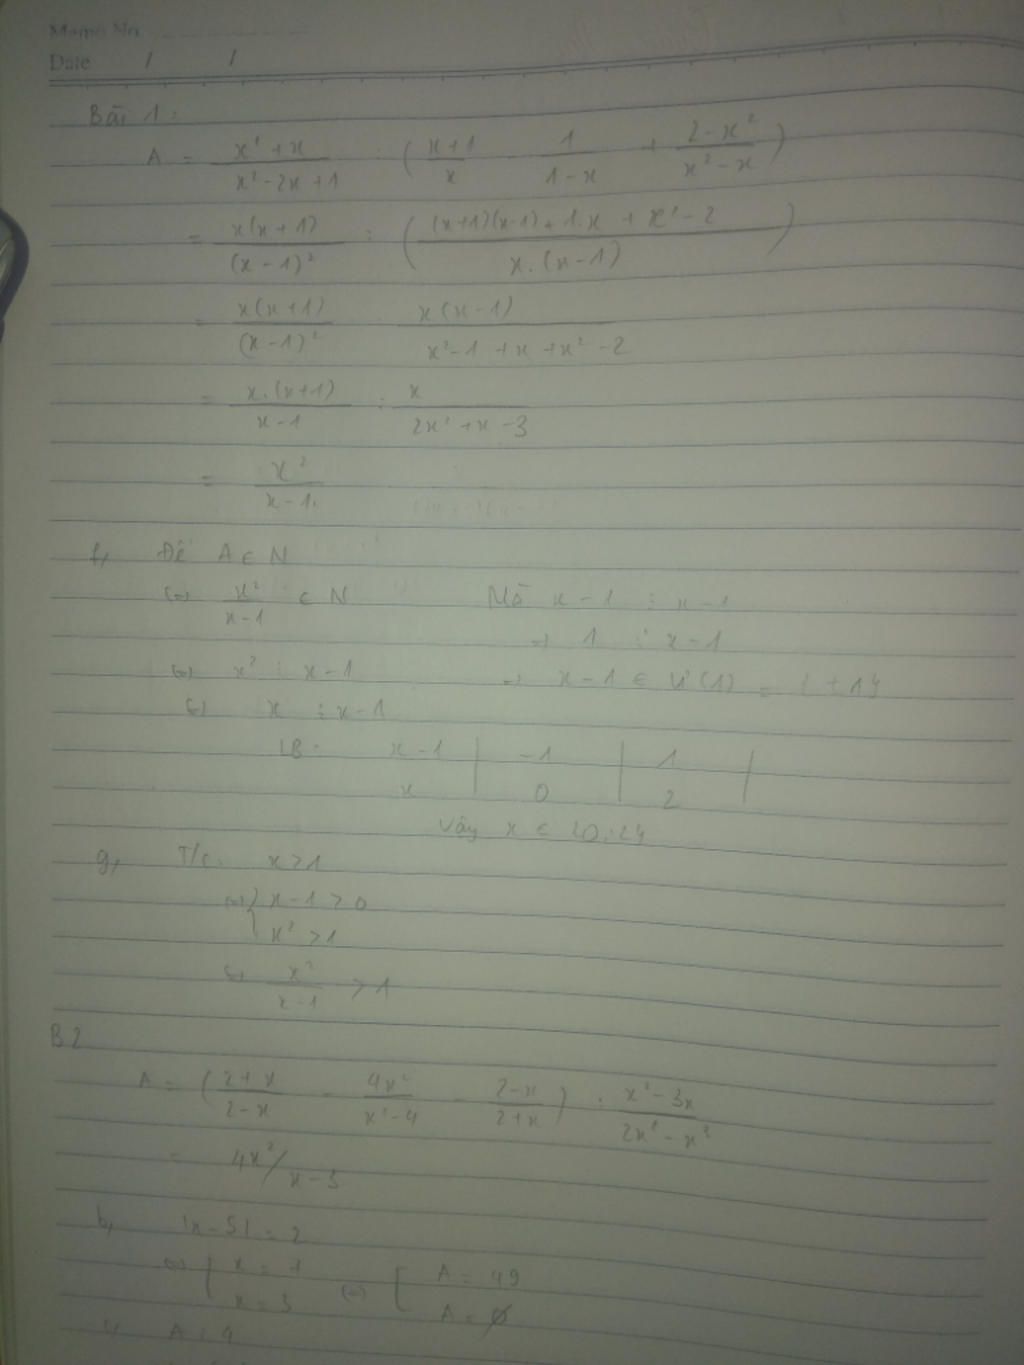 Memo No
Date / /
Bài 1:
A = \frac{x² + x}{x² - 2x + 1} : ( \frac{x+1}{x} - \frac{1}{1-x} + \frac{2-x²}{x²-x} )
= \frac{x(x+1)}{(x-1)²} : ( \frac{(x+1)(x-1) + 1.x + x² - 2}{x.(x-1)} )
= \frac{x(x+1)}{(x-1)²} . \frac{x(x-1)}{x²-1 +x +x² -2}
= \frac{x.(x+1)}{x-1} : \frac{x}{2x² +x -3}
= \frac{x²}{x-1}
f, Để A ∈ N
(=) \frac{x²}{x-1} ∈ N Mà x-1 ⋮ x-1
=> 1 ⋮ x-1
(=) x² ⋮ x-1 => x-1 ∈ Ư(1) = {±1}
(=) x ⋮ x-1
LB: x-1 | -1 | 1 |
x | 0 | 2 |
Vậy x ∈ {0;2}
g, T/c: x>1
(=) { x-1 > 0
x² > 1
(=) \frac{x²}{x-1} > 1
B2
A = ( \frac{2+x}{2-x} - \frac{4x²}{x²-4} - \frac{2-x}{2+x} ) : \frac{x²-3x}{2x²-x³}
= 4x²/x-3
b, |x-5| = 2
(=) [ x = 7 (=) [ A = 49
x = 3 A = ∅